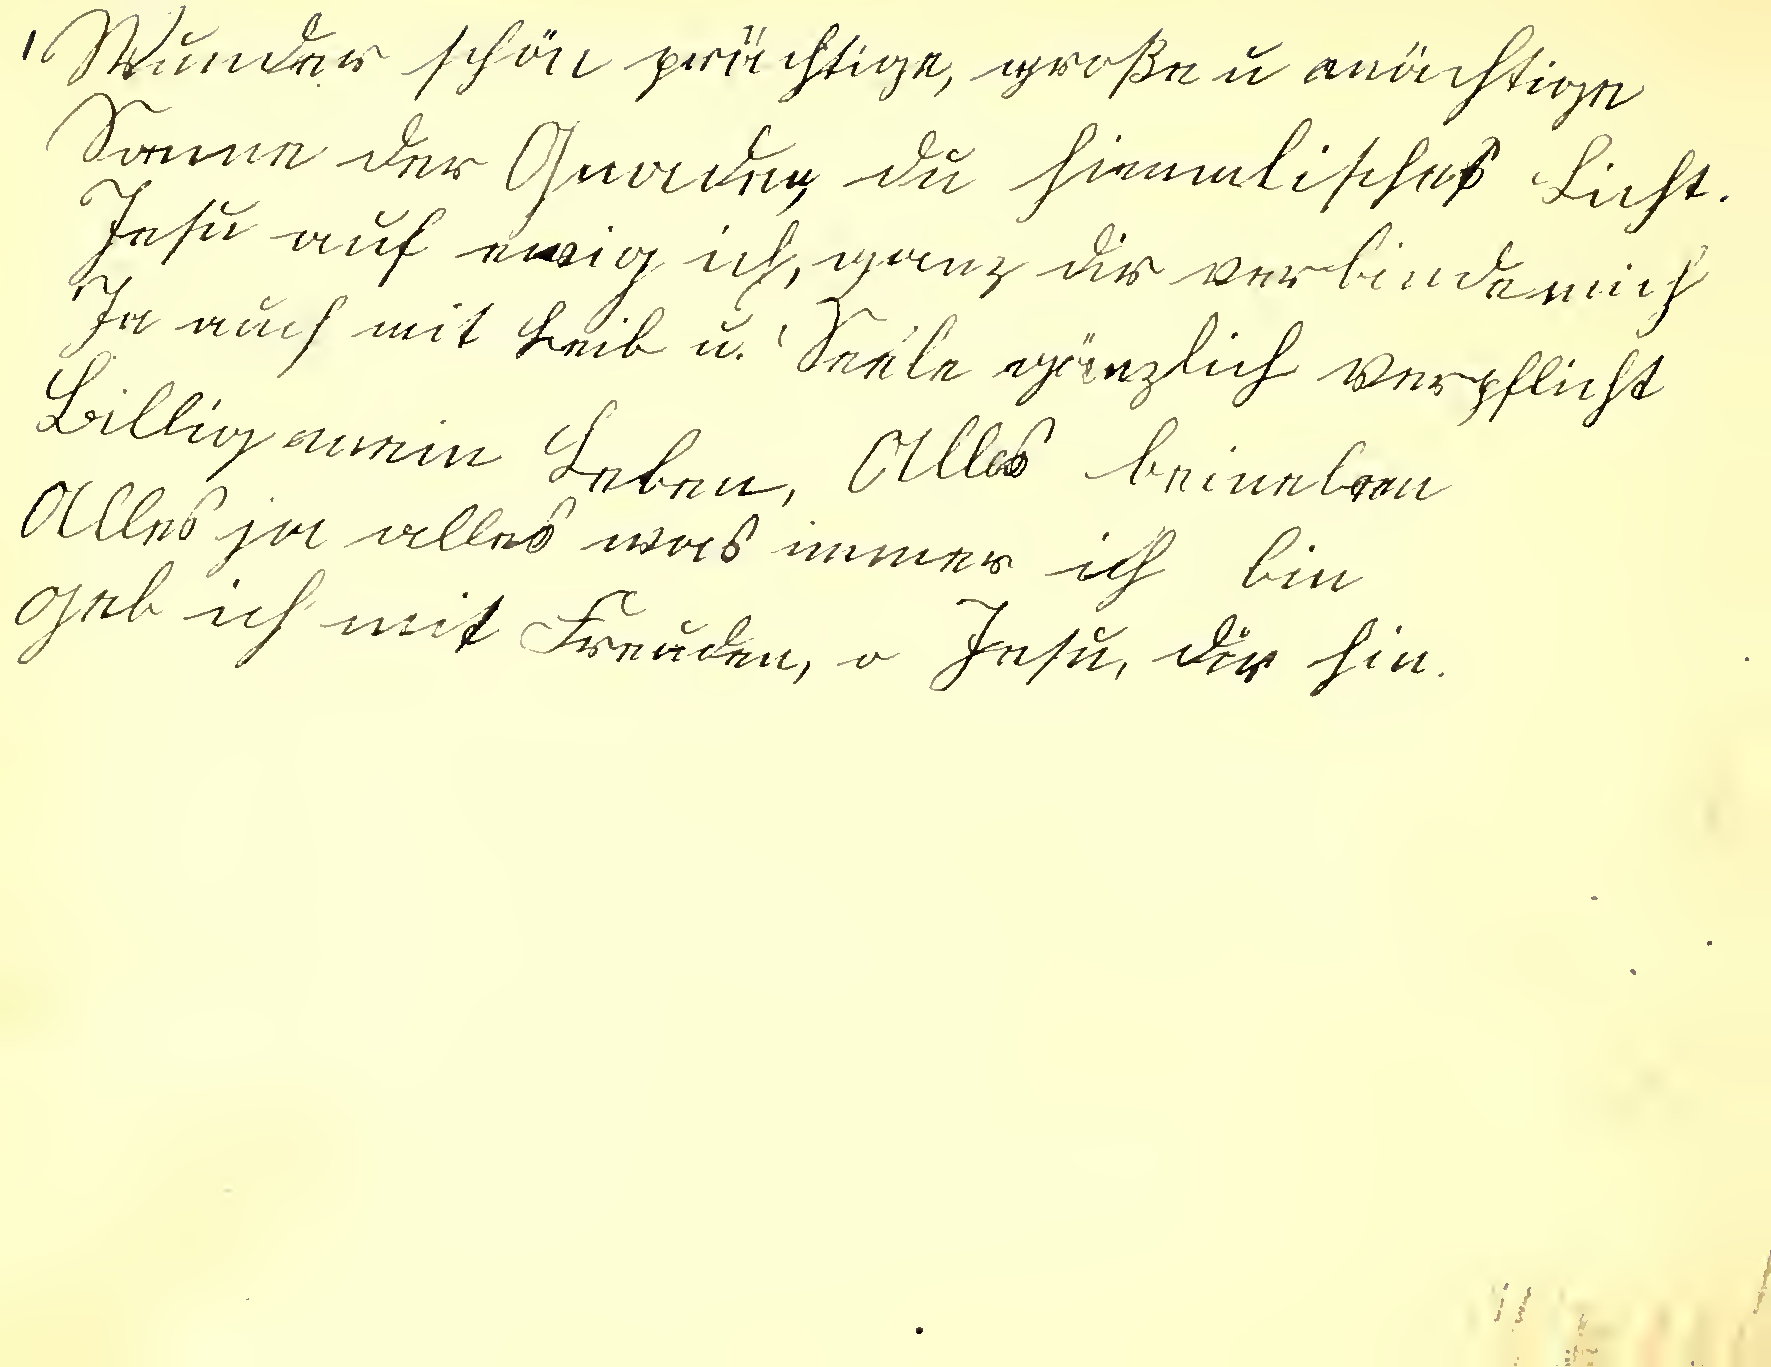 1. Wunder schön prächtige, große u mächtige
Sonne der Gnaden, du himmlisches Licht.
Jesu auf ewig ich, ganz dir verbinde mich
Ja auch mit Leib u. Seele gänzlich verpflicht
Billig mein Leben, Alles beineben
Alles ja alles was immer ich bin
geb ich mit Freuden, o Jesu, dir hin.